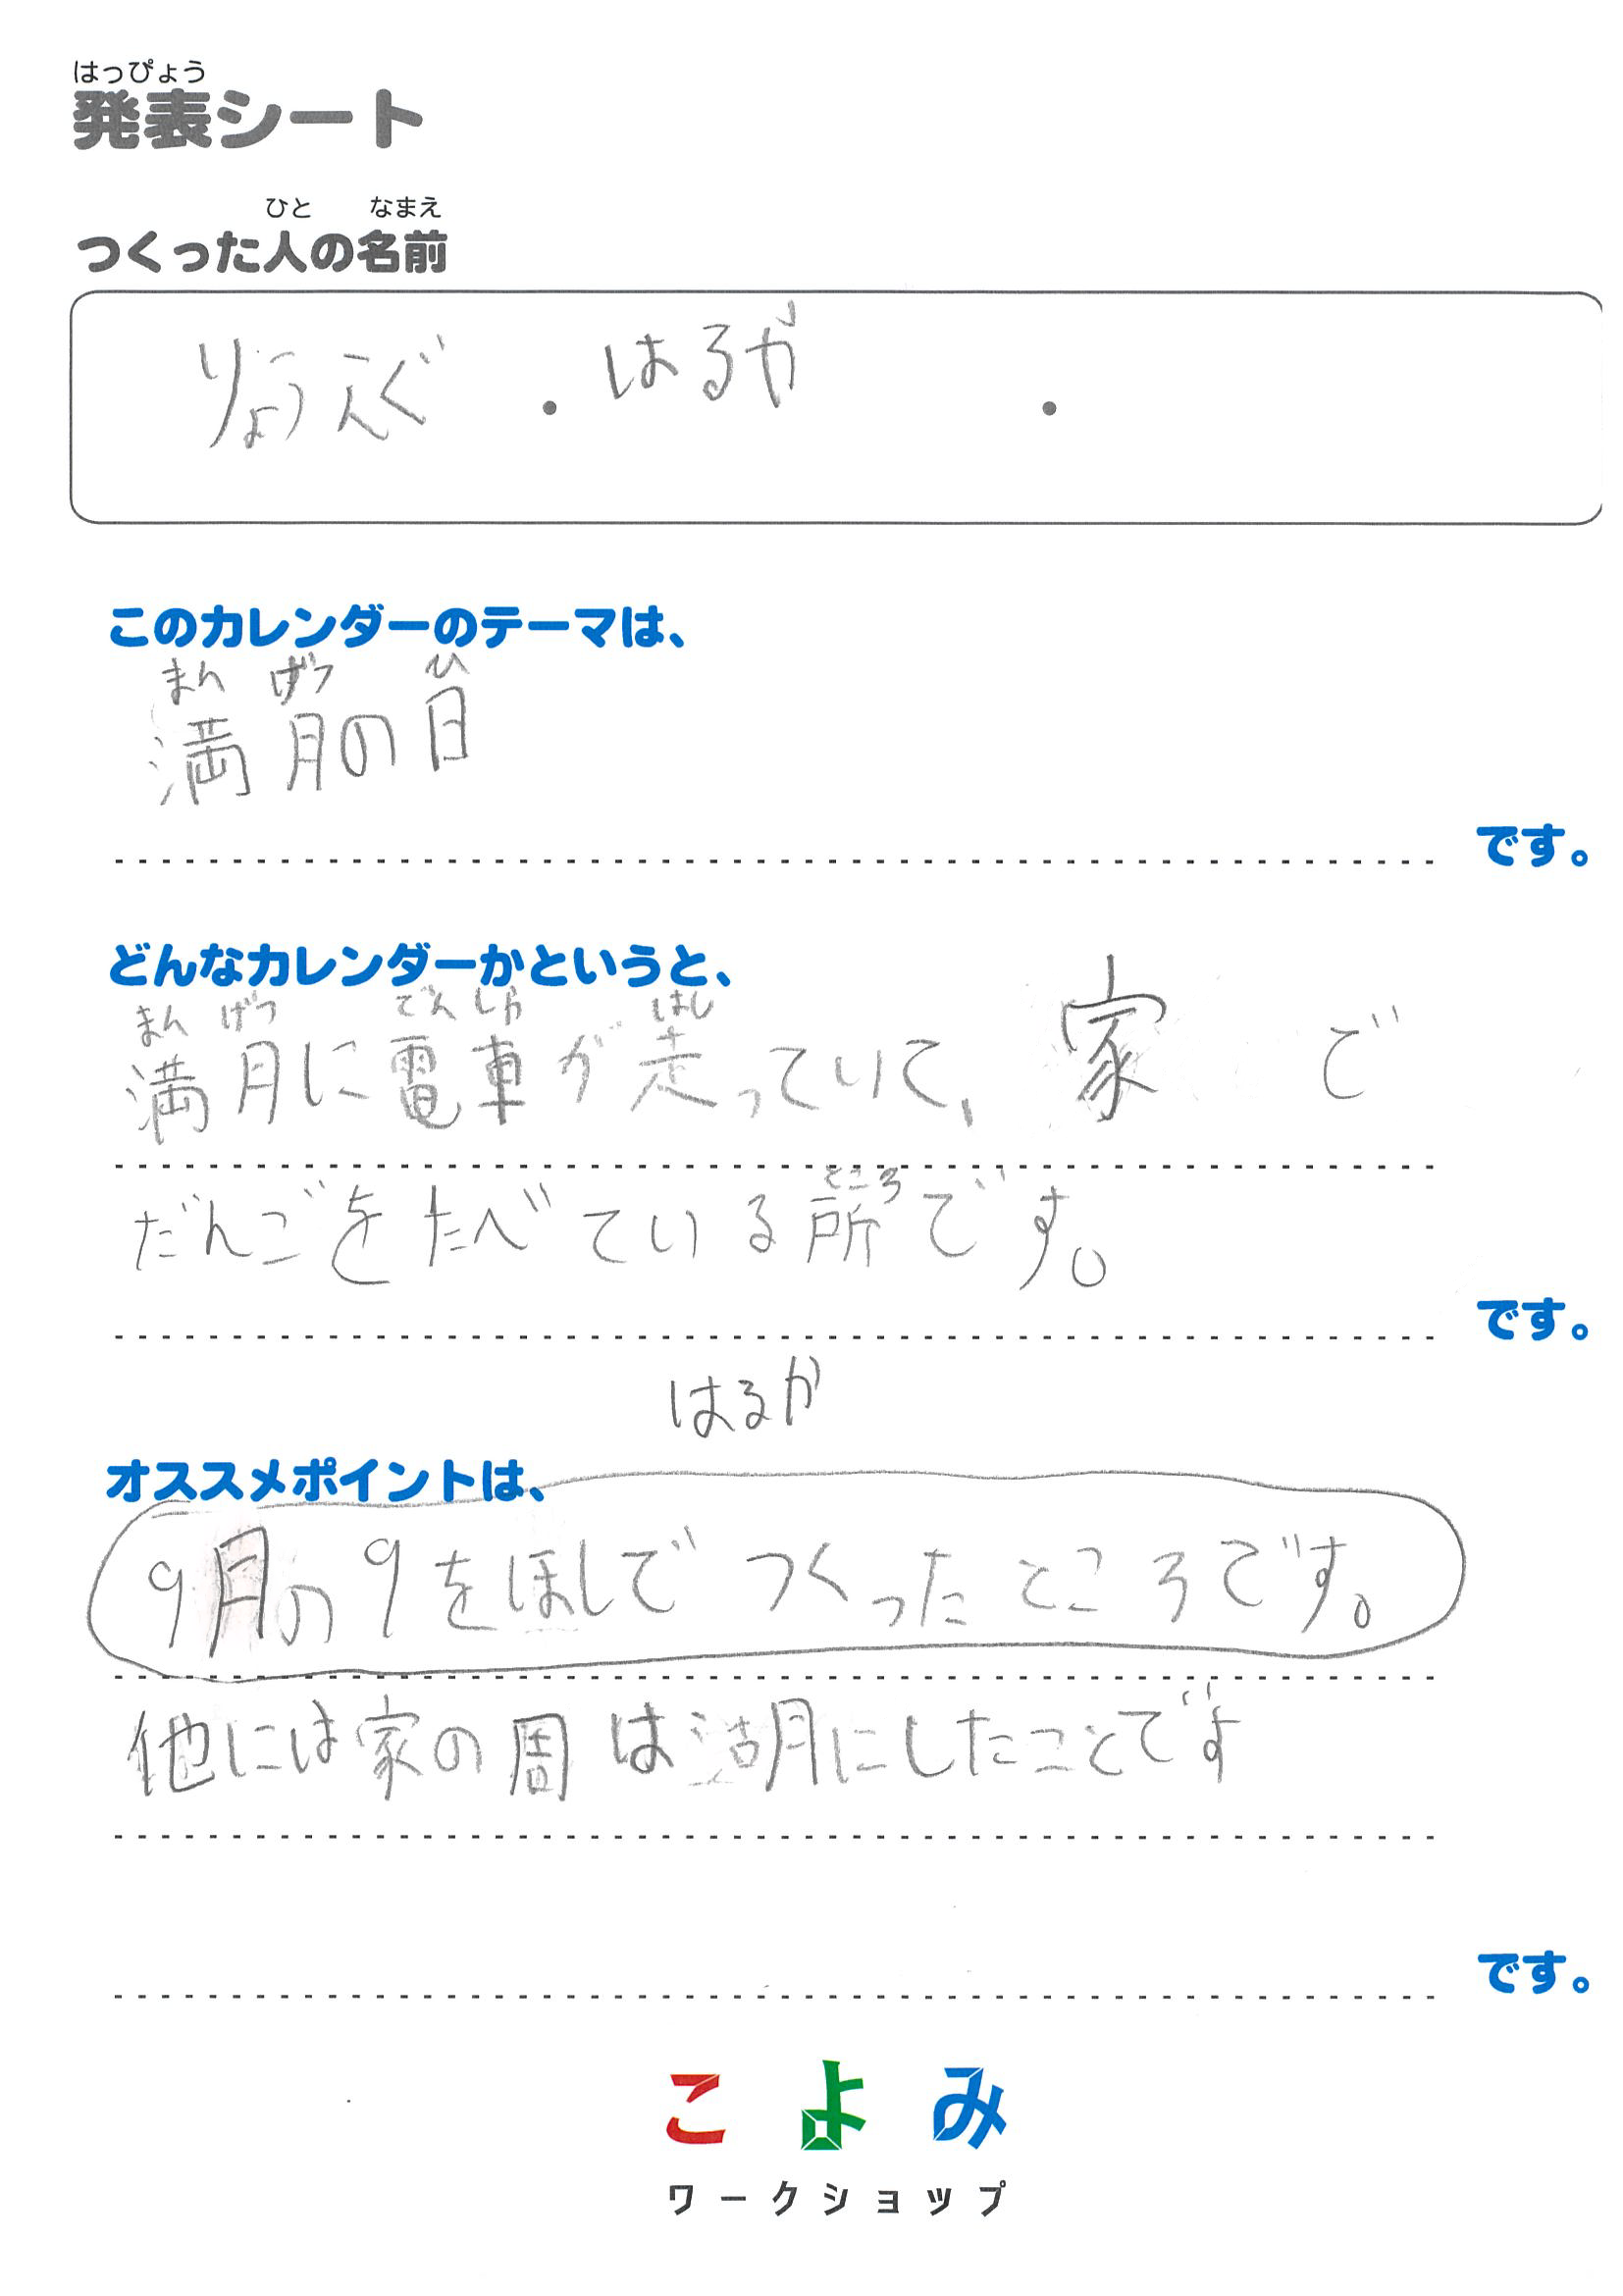 はっぴょう
発表シート
ひと なまえ
つくった人の名前
はるか
このカレンダーのテーマは、
まん げつ ひ
満月の日
です。
どんなカレンダーかというと、
まん げつ でん しゃ はし
満月に電車が走っていて、家で
ところ
だんごをたべている所です。
です。
はるか
オススメポイントは、
9月の9をほしでつくったところです。
他には家の周は湖にしたことです
です。
こよみ
ワークショップ